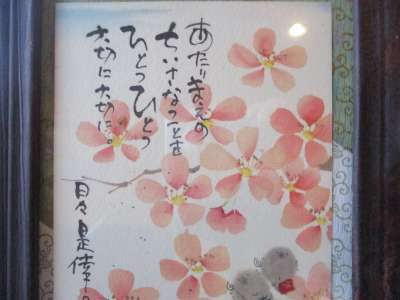 あたりまえの
ちいさなことを
ひとつひとつ
大切に大切に。
日々是倖